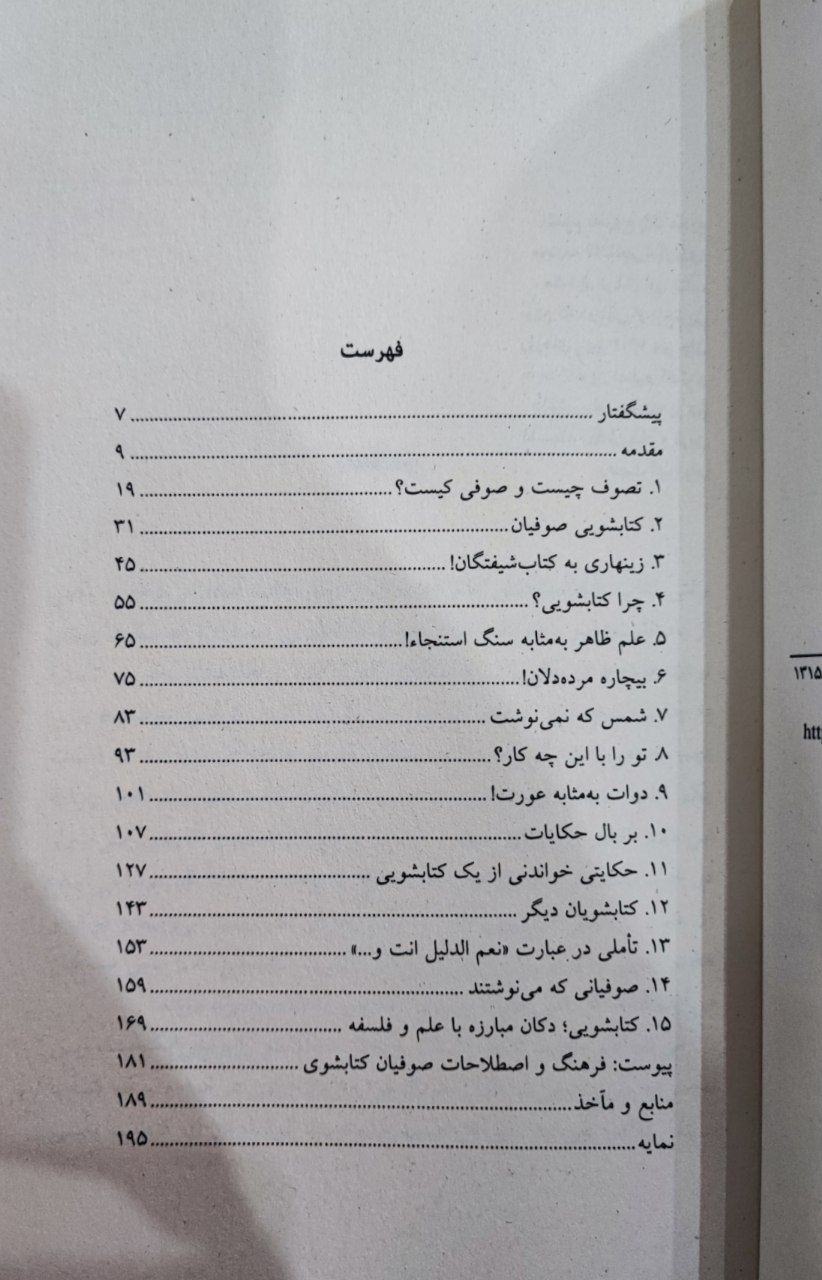 فهرست
پیشگفتار ........ ۷
مقدمه ........ ۹
۱. تصوف چیست و صوفی کیست؟ ........ ۱۹
۲. کتابشویی صوفیان ........ ۳۱
۳. زینهاری به کتاب‌شیفتگان! ........ ۴۵
۴. چرا کتابشویی؟ ........ ۵۵
۵. علم ظاهر به‌مثابه سنگ استنجاء! ........ ۶۵
۶. بیچاره مرده‌دلان! ........ ۷۵
۷. شمس که نمی‌نوشت ........ ۸۳
۸. تو را با این چه کار؟ ........ ۹۳
۹. دوات به‌مثابه عورت! ........ ۱۰۱
۱۰. بر بال حکایات ........ ۱۰۷
۱۱. حکایتی خواندنی از یک کتابشویی ........ ۱۲۷
۱۲. کتابشویان دیگر ........ ۱۴۳
۱۳. تأملی در عبارت «نعم الدلیل انت و...» ........ ۱۵۳
۱۴. صوفیانی که می‌نوشتند ........ ۱۵۹
۱۵. کتابشویی؛ دکان مبارزه با علم و فلسفه ........ ۱۶۹
پیوست: فرهنگ و اصطلاحات صوفیان کتابشوی ........ ۱۸۱
منابع و مآخذ ........ ۱۸۹
نمایه ........ ۱۹۵
۱۳۱۵
htt